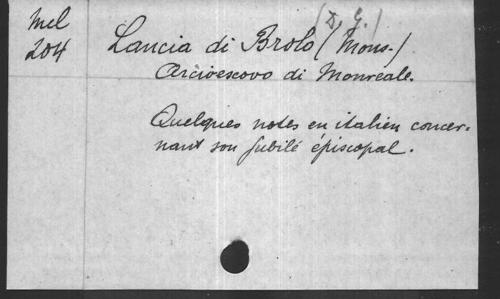 Mel
204
(D. G.)
Lancia di Brolo (Mons.)
Arcivescovo di Monreale.
Quelques notes en italien concer-
nant son jubilé épiscopal.